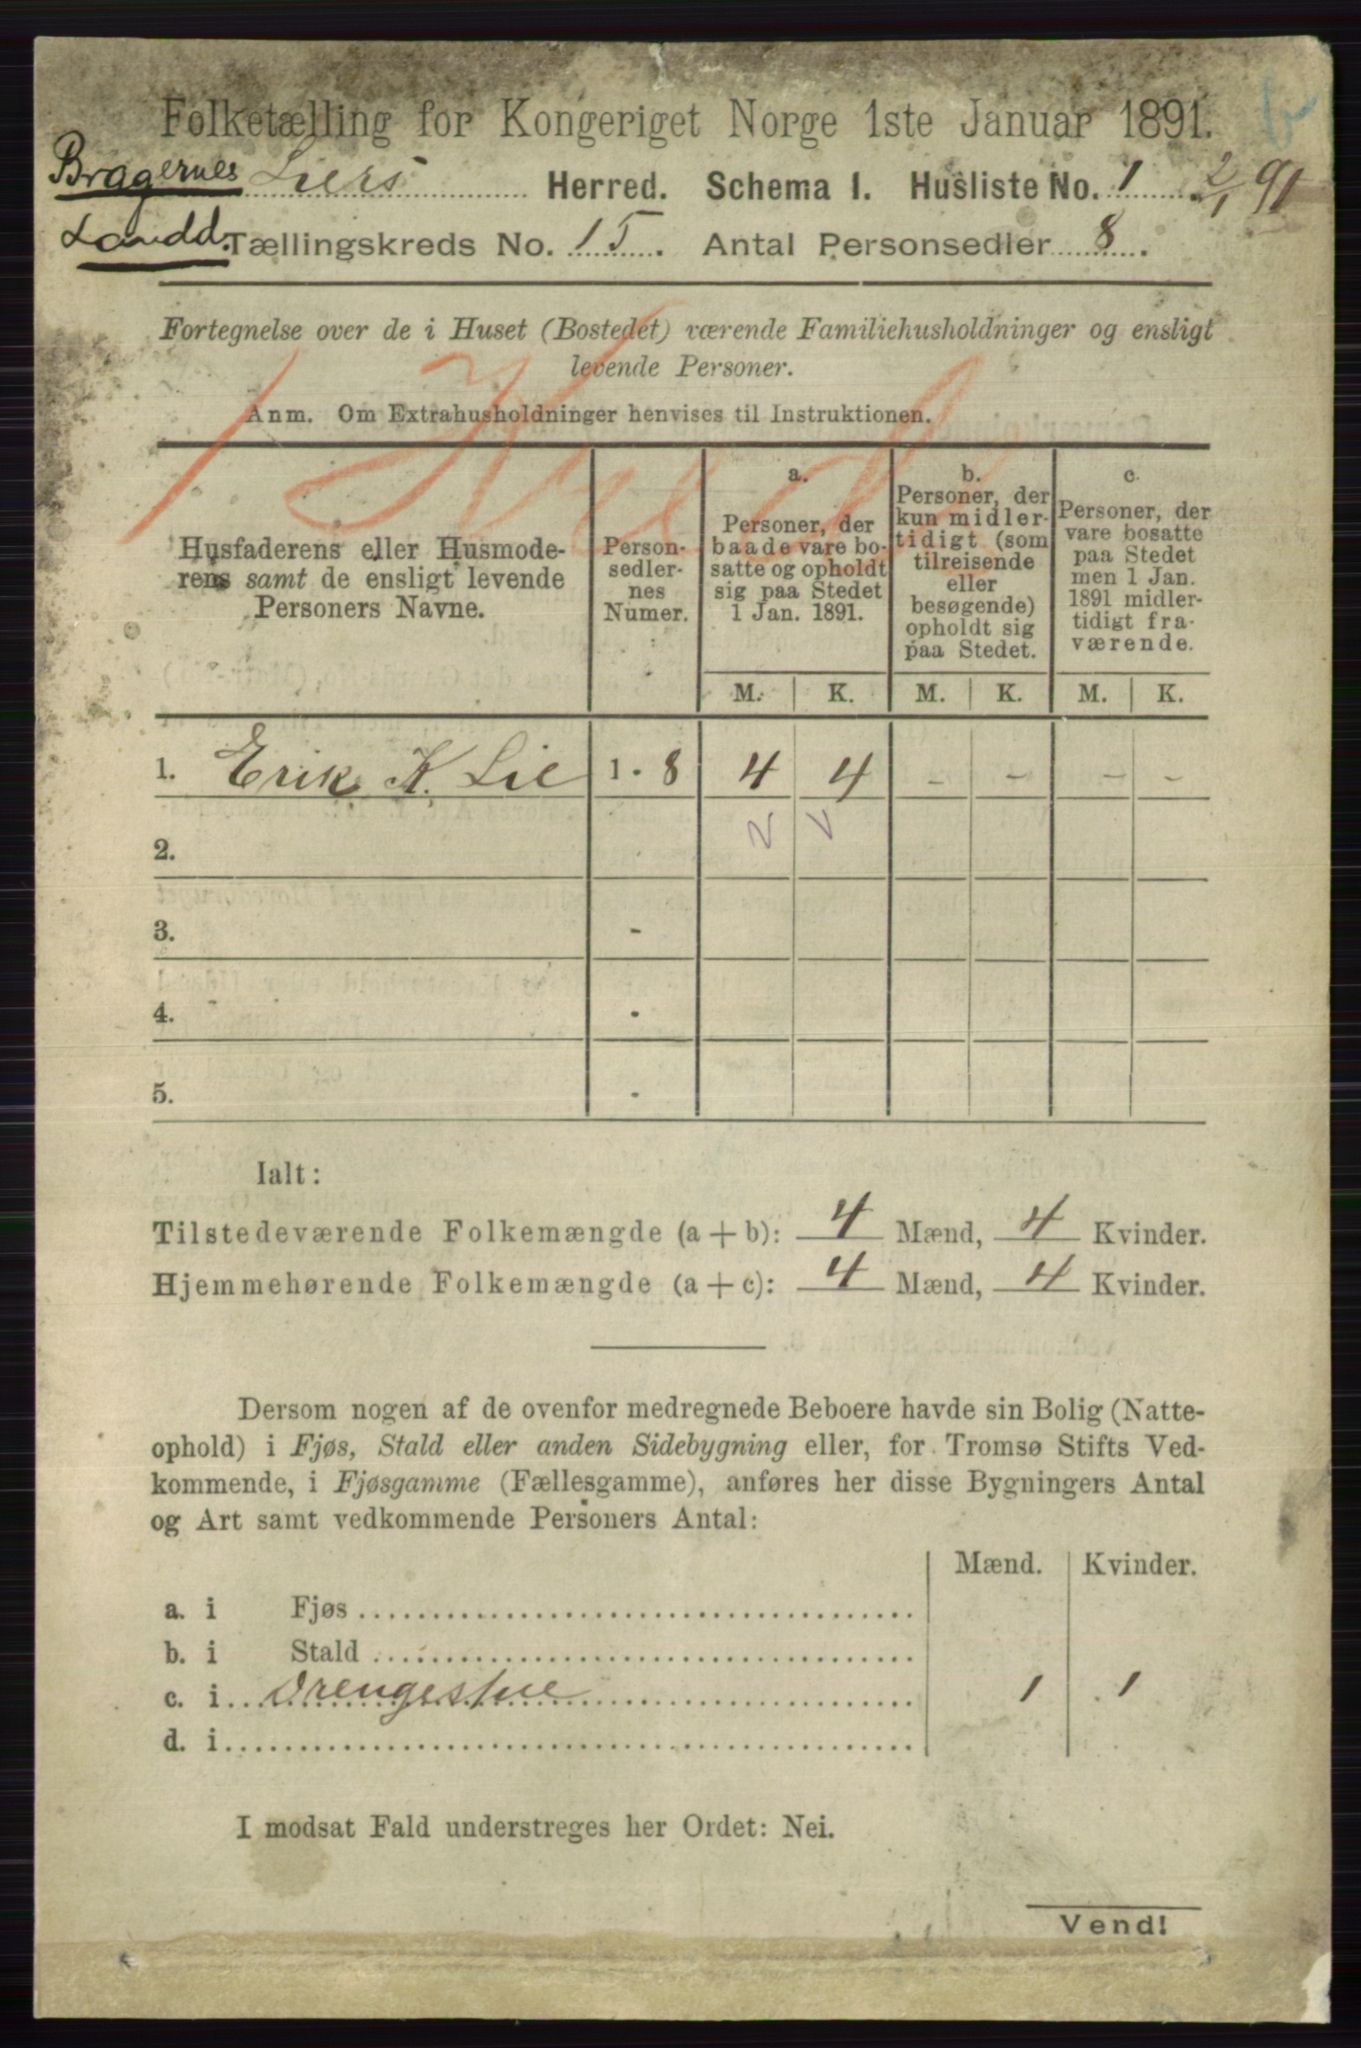 Folketælling for Kongeriget Norge 1ste Januar 1891.
Bragernes Liers Herred. Schema 1. Husliste No. 1. 2/1 91
Landd. Tællingskreds No. 15. Antal Personsedler 8.
Fortegnelse over de i Huset (Bostedet) værende Familiehusholdninger og ensligt
levende Personer.
Anm. Om Extrahusholdninger henvises til Instruktionen.
Husfaderens eller Husmode-
rens samt de ensligt levende
Personers Navne.
Person-
sedler-
nes
Numer.
a.
Personer, der
baade vare bo-
satte og opholdt
sig paa Stedet
1 Jan. 1891.
b.
Personer, der
kun midler-
tidigt (som
tilreisende
eller
besøgende)
opholdt sig
paa Stedet.
c.
Personer, der
vare bosatte
paa Stedet
men 1 Jan.
1891 midler-
tidigt fra-
værende.
M. K. M. K. M. K.
1. Erik K. Lie 1 - 8 4 4 - - - -
2.
3. -
4. -
5. -
Ialt:
Tilstedeværende Folkemængde (a + b): 4 Mænd, 4 Kvinder.
Hjemmehørende Folkemængde (a + c): 4 Mænd, 4 Kvinder.
Dersom nogen af de ovenfor medregnede Beboere havde sin Bolig (Natte-
ophold) i Fjøs, Stald eller anden Sidebygning eller, for Tromsø Stifts Ved-
kommende, i Fjøsgamme (Fællesgamme), anføres her disse Bygningers Antal
og Art samt vedkommende Personers Antal:
Mænd. Kvinder.
a. i Fjøs
b. i Stald
c. i Drengestue 1 1
d. i
I modsat Fald understreges her Ordet: Nei.
Vend!